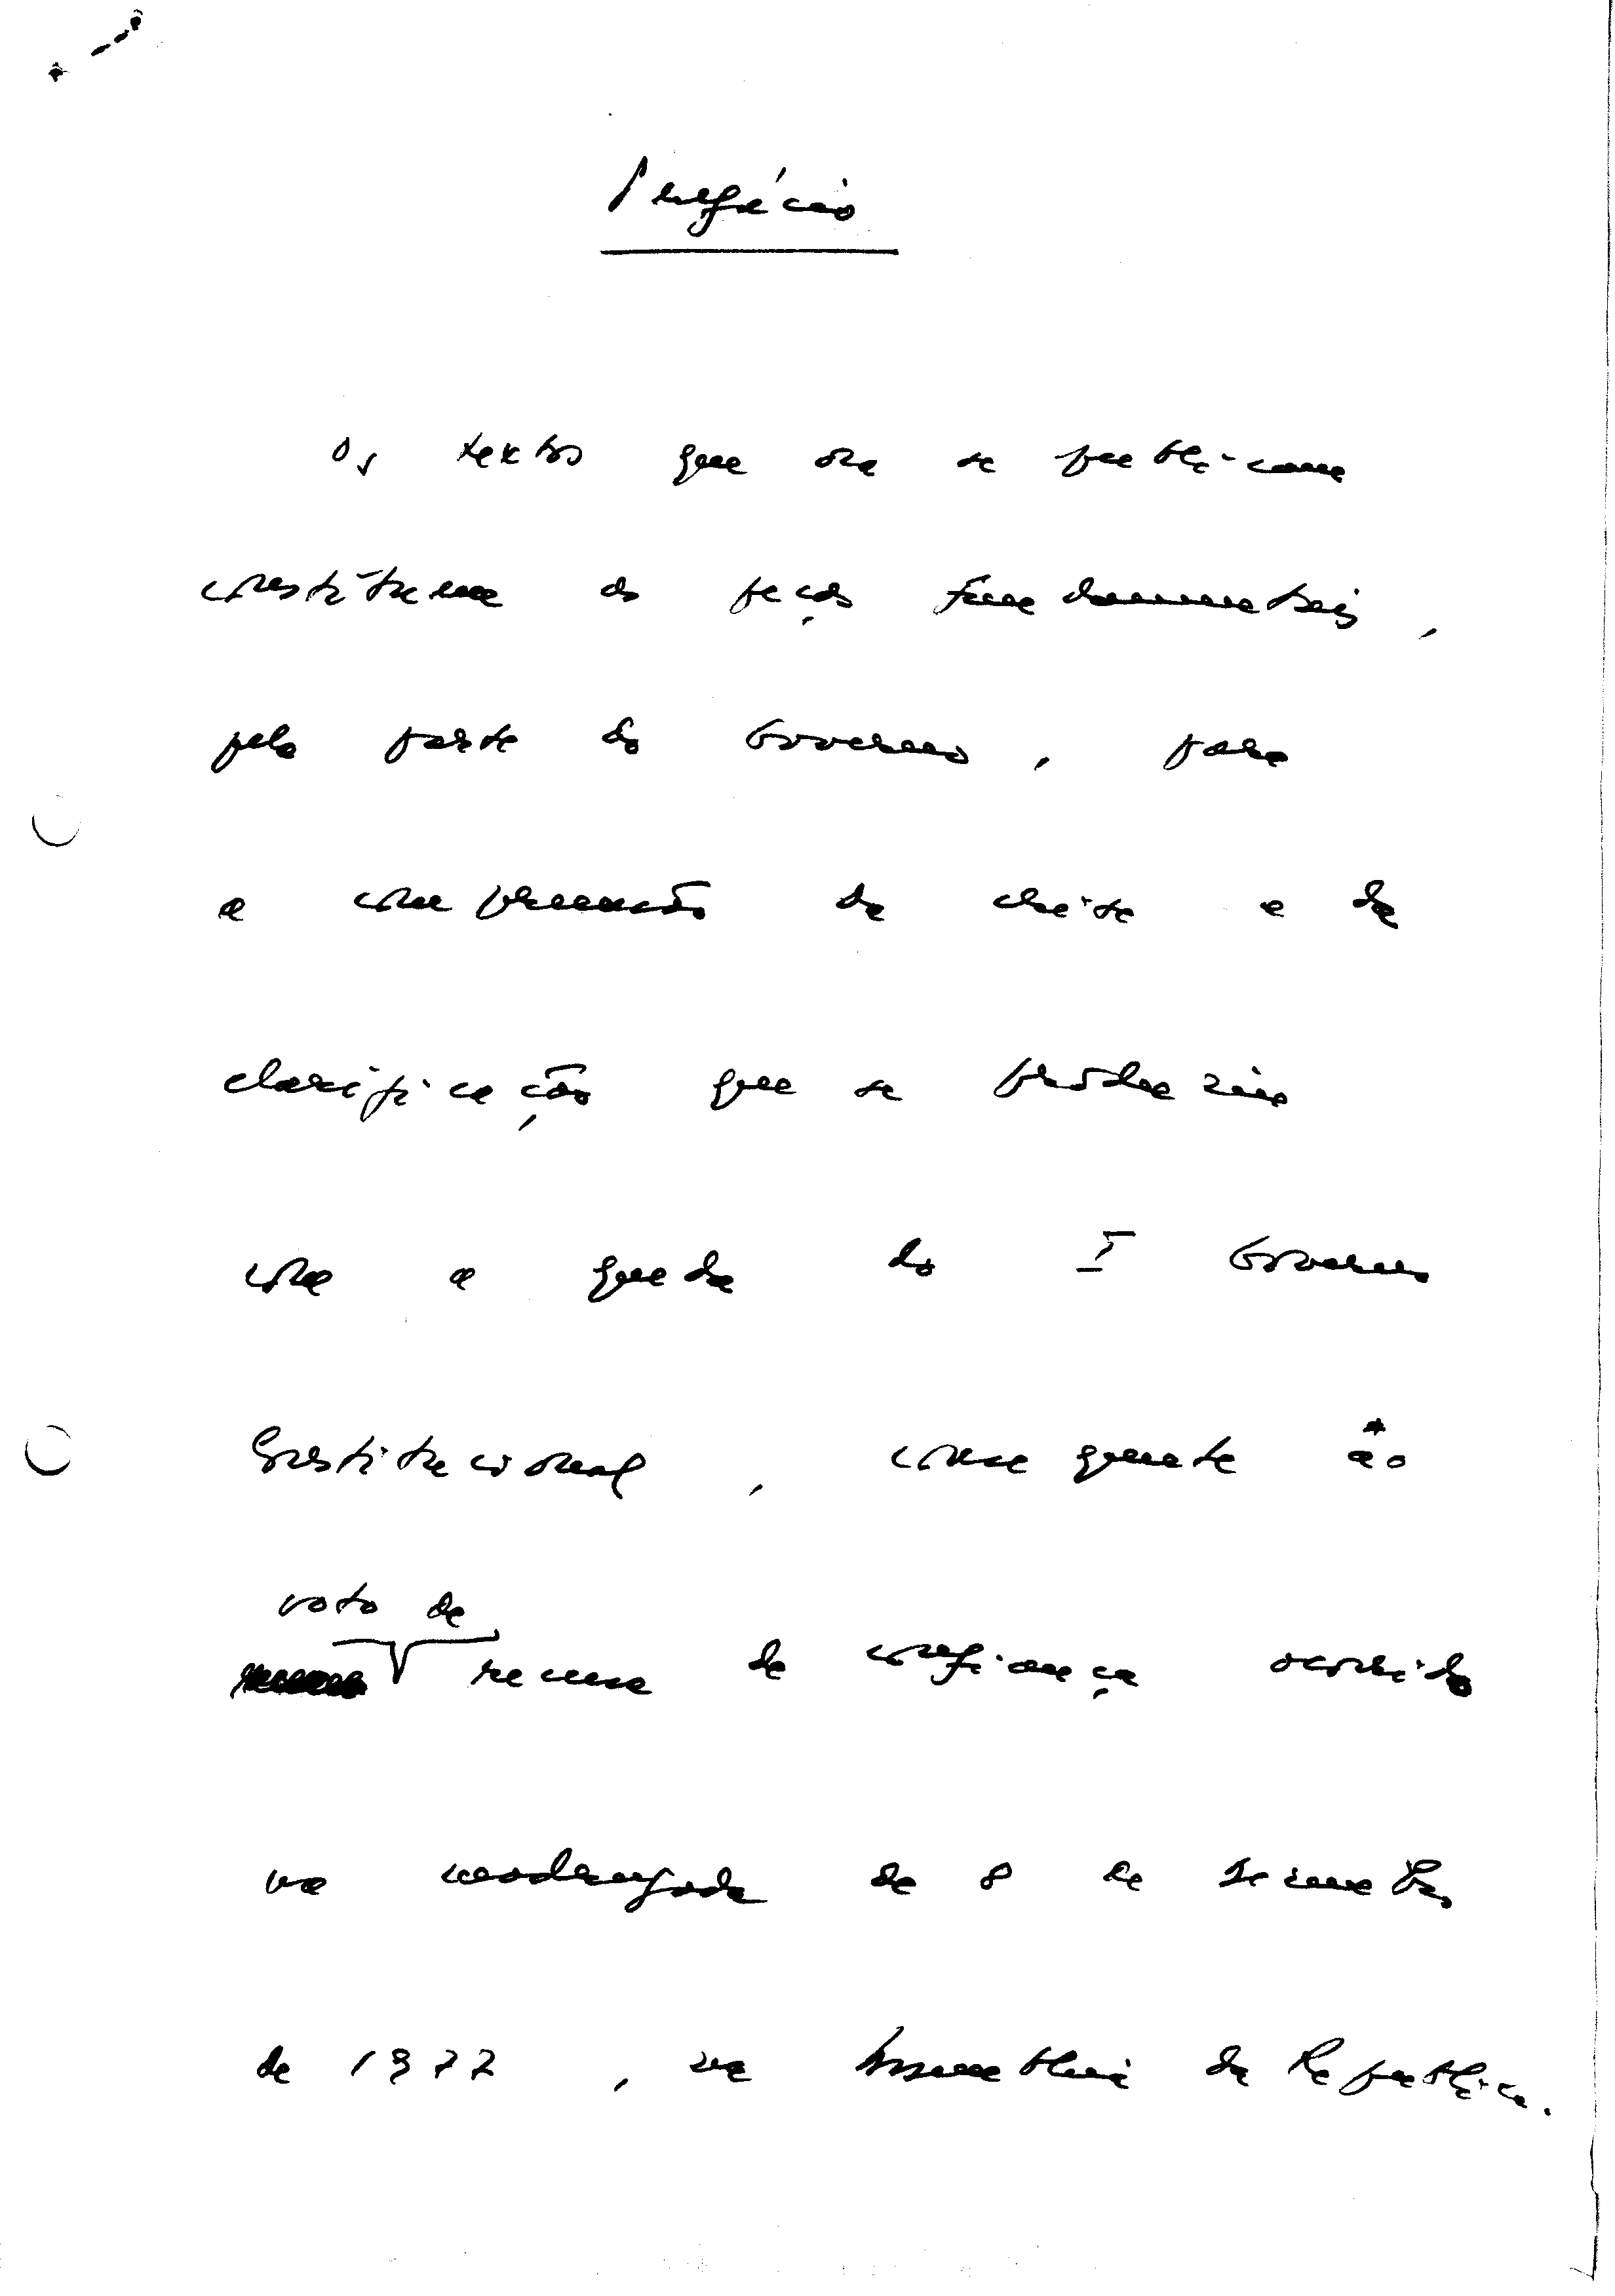 Prefácio
Os textos que ora se publicam
constituem as peças fundamentais,
pela parte do Governo, para
a compreensão da crise e da
clarificação que se produziu
com a queda do I Governo
Constitucional, consequente ao
voto de
recusa de confiança ocorrido
na madrugada de 8 de Dezembro
de 1977, na Assembleia da República.